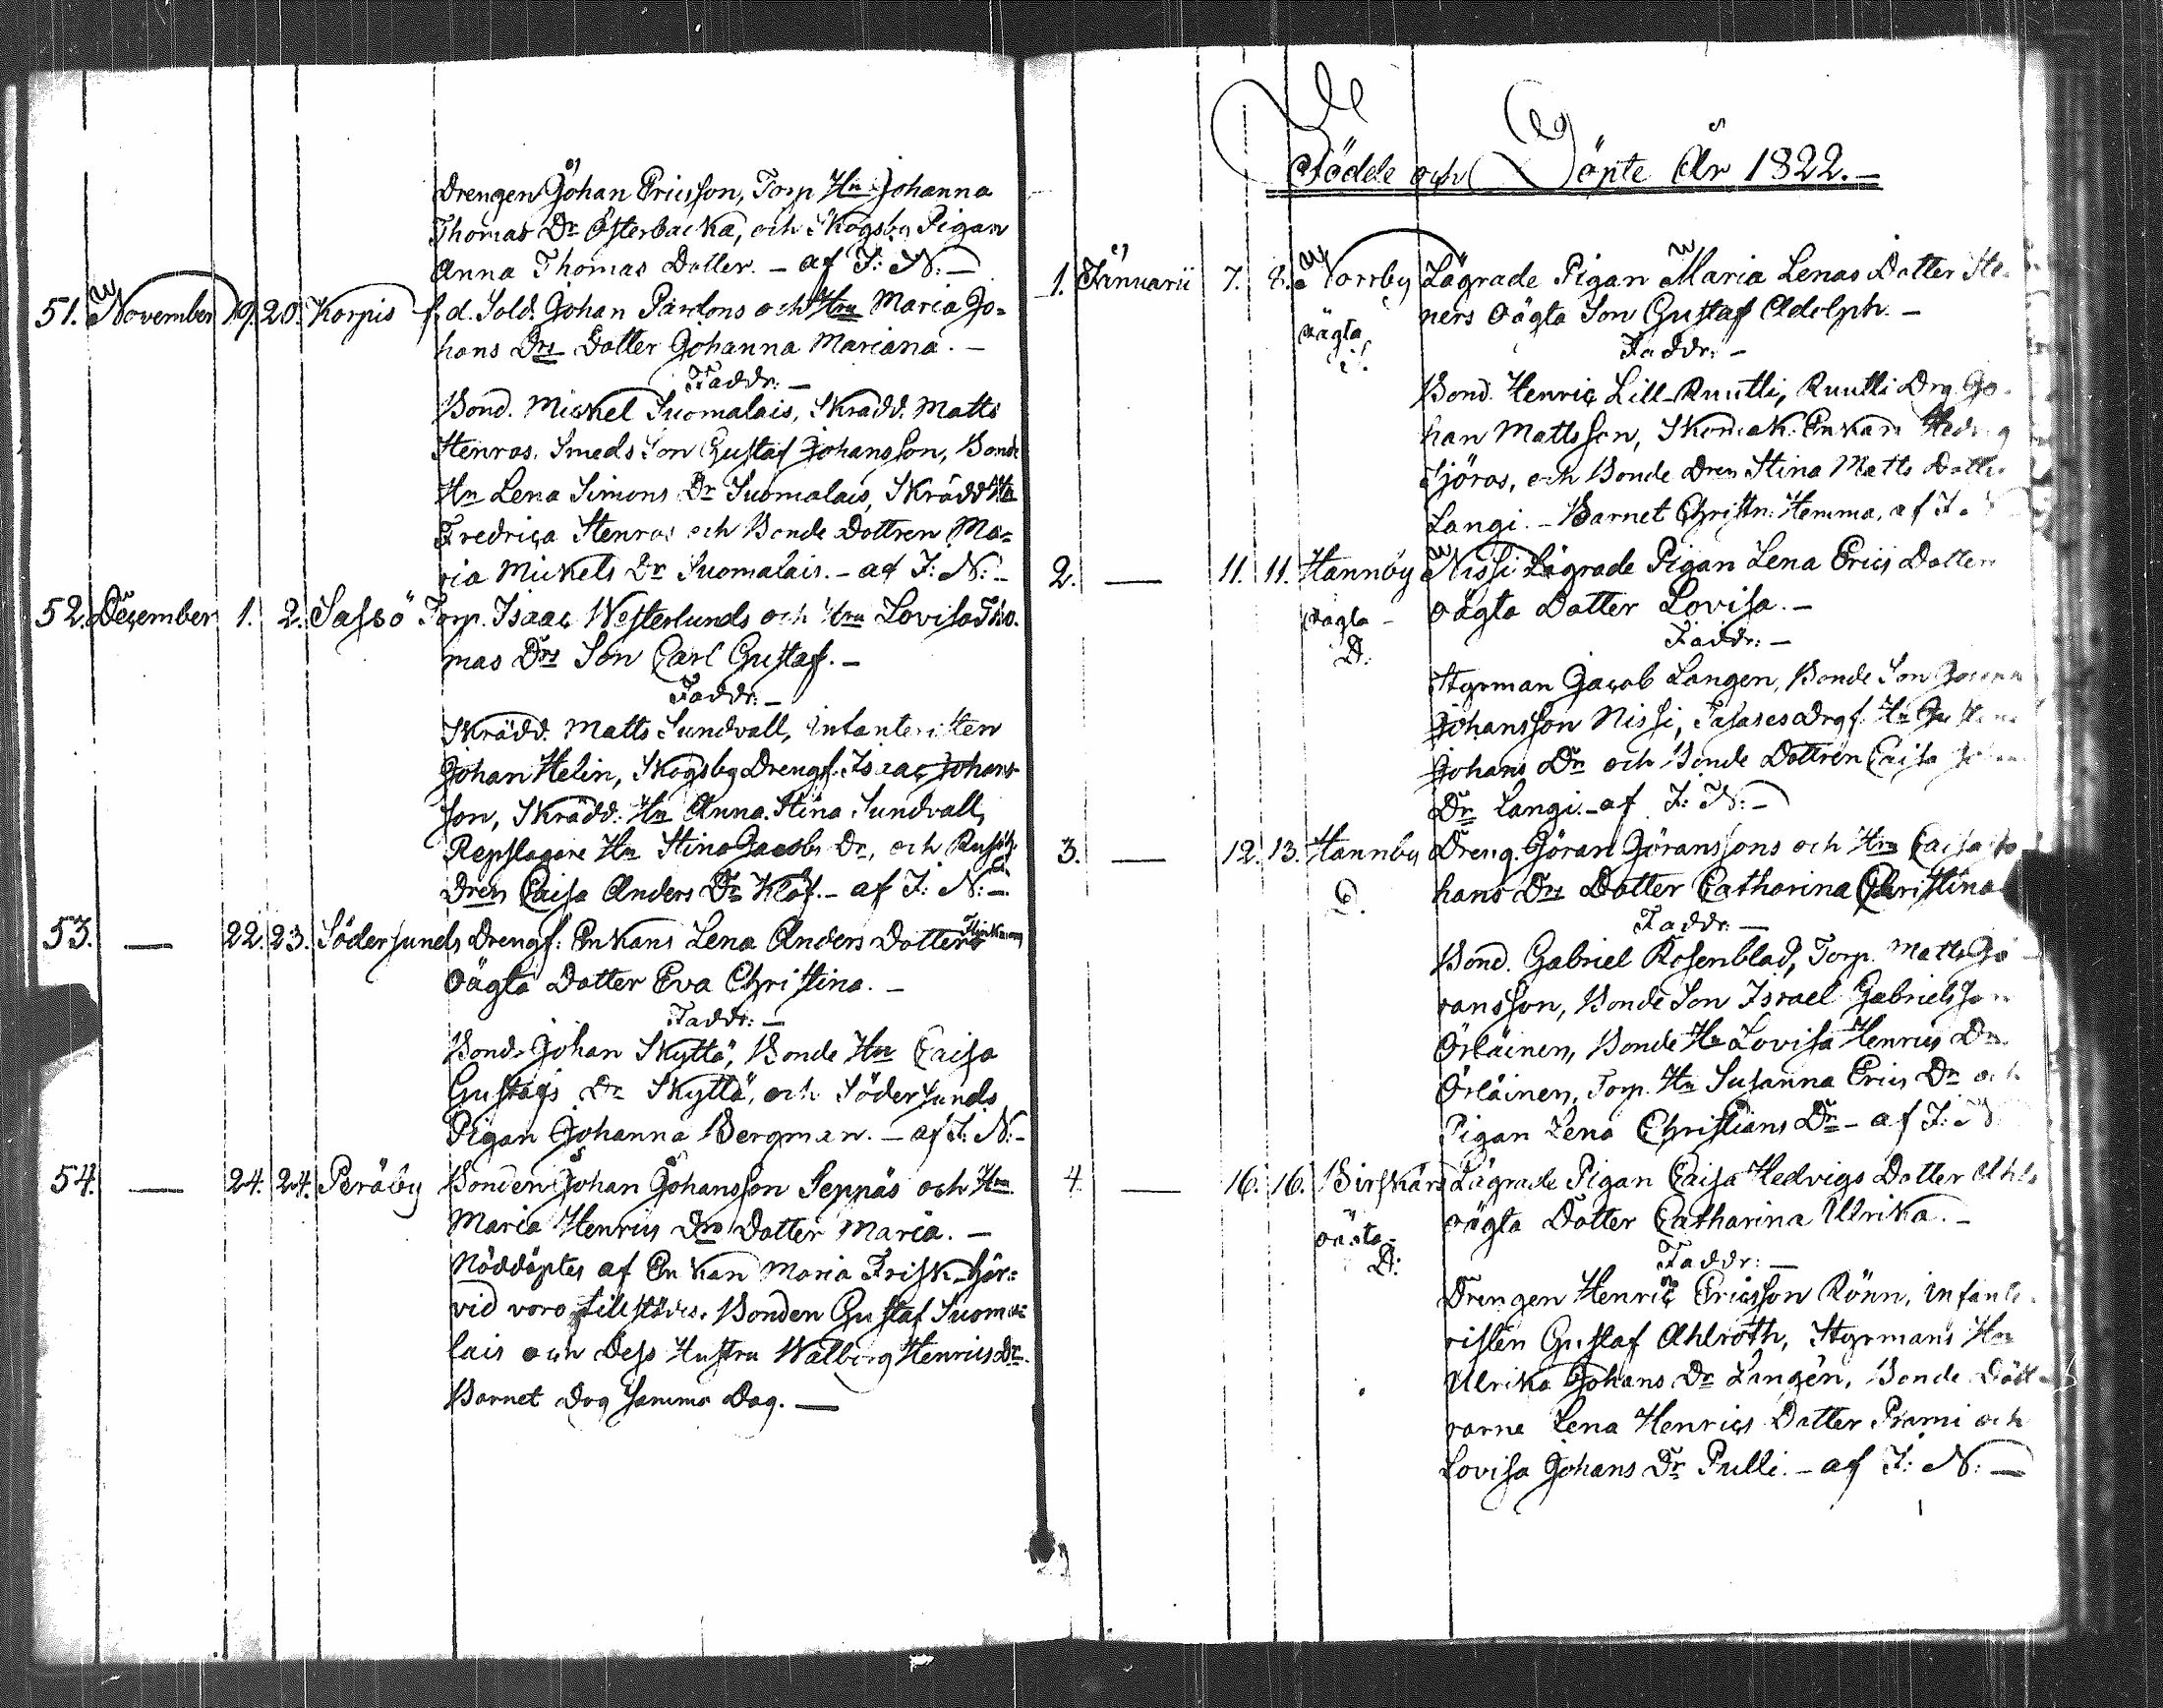 Drengen Johan Ericsson, Torp Hn Johanna
Thomas Dr Österbacka, och Skogsby Pigan
Anna Thomas Dotter. – af I: N: –
51. November 19. 20. Korpis f. d. Sold. Johan Pardons och Hru Maria Jo=
hans Drs Dotter Johanna Mariana. –
Faddr: –
Bond. Mickel Suomalais, Skrädd. Matts
Stenros, Smeds Son Gustaf Johansson, Bonde
Hn Lena Simons Dr Suomalais, Skrädd Hn
Fredrica Stenros och Bonde Dottren Ma=
ria Mickels Dr Suomalais. – af I: N: –
52. December 1. 2. Sassö Torp. Isaac Westerlunds och Hru Lovisa Tho=
mas Drs Son Carl Gustaf. –
Faddr: –
Skrädd. Matts Sundvall, Infanteristen
Johan Helin, Skogsby Drengf. Isaac Johans
son, Skrädd. Hn Anna Stina Sundvall,
Repslagare Hn Stina Jacobs Dr, och
Dren Caisa Anders Dr Klöf. – af I: N: –
53. — 22. 23. Södersunds Drengf. Enkans Lena Anders Dotters
oägta Dotter Eva Christina. –
Faddr: –
Bond. Johan Skyttä, Bonde Hn Caisa
Gustafs Dr Skyttä, och Södersunds
Pigan Johanna Bergman. – af I: N: –
54. — 24. 24. Peräby Bonden Johan Johansson Seppäs och Hru
Maria Henrics Drs Dotter Maria. –
Nöddöptes af Enkan Maria Frisk. Här=
vid voro tillstädes. Bonden Gustaf Suoma
lais och Dess Hustru Walborg Henrics Dr.
Barnet Dog samma Dag. —
Födde och Döpte År 1822. –
1. Januarii 7. 8. Norrby Lägrade Pigan Maria Lenas Dotter Ste=
oägta
ners oägta Son Gustaf Adolph. –
Faddr: –
Bond. Henric Lill-Ruutti, Ruutti Drg. Jo=
han Mattsson, Skomak. Enkan Hedvig
Sjöros, och Bonde Dren Stina Matts Dotter
Langi. – Barnet Christn: Hemma, af I.
2. — 11. 11. Hannby Nissi Lägrade Pigan Lena Erics Dotters
oägta – oägta Dotter Lovisa. –
D: Faddr: –
Styrman Jacob Langen, Bonde Son
Johansson Nissi, Drgf. Hn
Johans Dr och Bonde Dottren Caisa
Dr Langi. – af I: N: –
3. — 12. 13. Hannby Dreng. Göran Göranssons och Hru Caisa Jo
D. hans Drs Dotter Catharina Christina
Faddr: –
Bond. Gabriel Rosenblad, Torp. Matts Gö=
ransson, Bonde Son Israel Gabrielsson
Örläinen, Bonde Hn Lovisa Henrics Dr
Örläinen, Torp. Hn Susanna Erics Dr och
Pigan Lena Christians Dr – af I: N
4. — 16. 16. Birskärs Lägrade Pigan Caisa Hedvigs Dotter
oägta – oägta Dotter Catharina Ulrika. –
D: Faddr: –
Drengen Henric Ericsson Rönn, Infante=
risten Gustaf Ahlroth, Styrmans Hn
Ulrika Johans Dr Langén, Bonde Dött=
rarne Lena Henrics Dotter Prami och
Lovisa Johans Dr Pulli. – af I: N: –